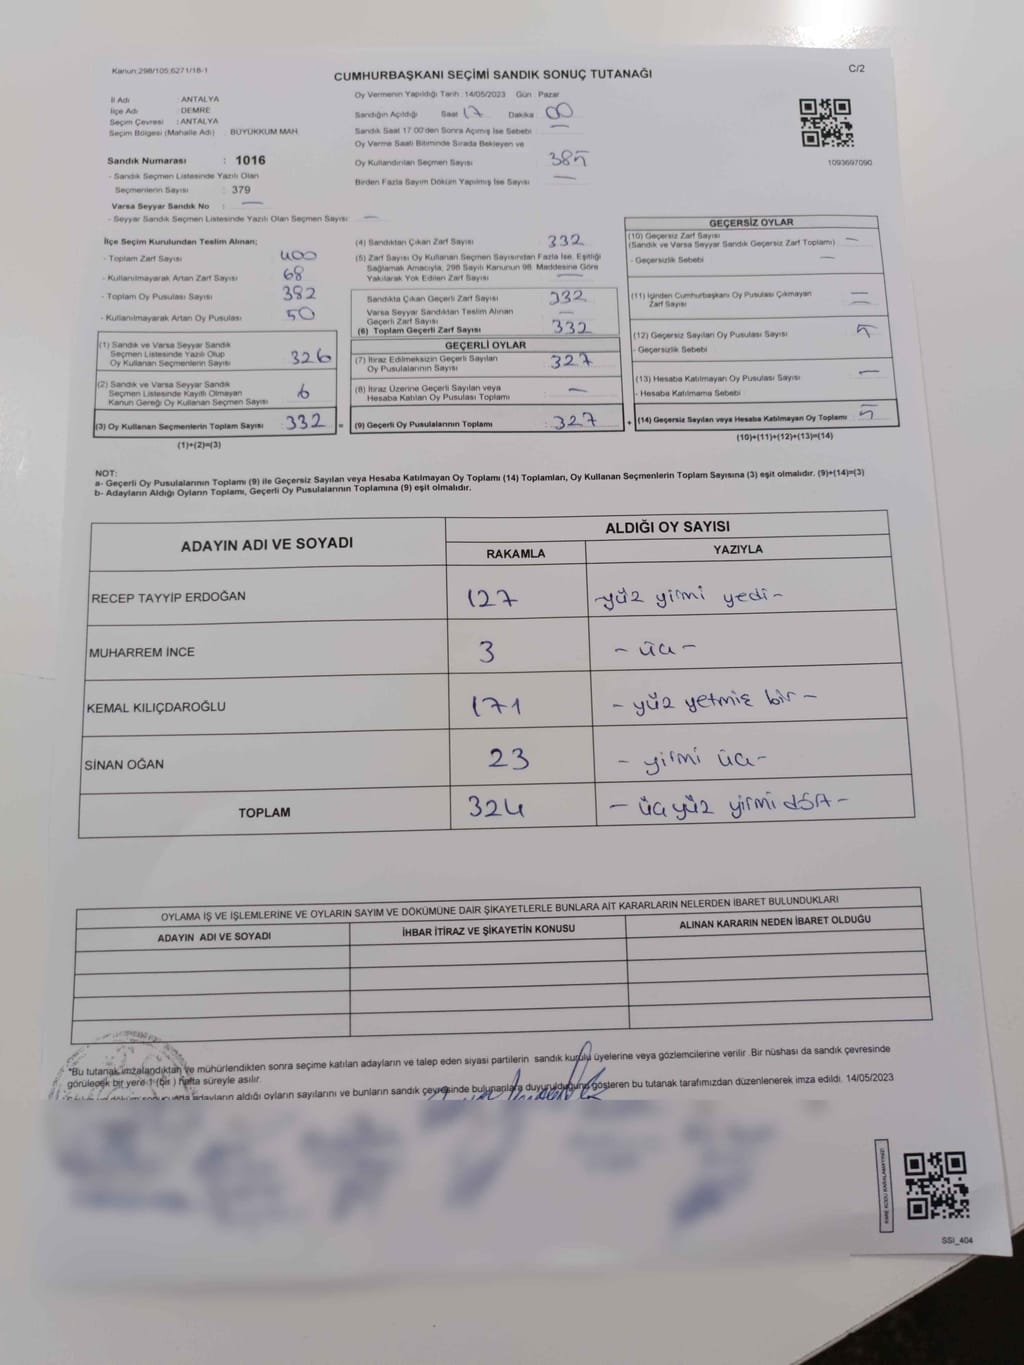 Kanun:298/105;6271/18-1
C/2
CUMHURBAŞKANI SEÇİMİ SANDIK SONUÇ TUTANAĞI
İl Adı : ANTALYA
İlçe Adı : DEMRE
Seçim Çevresi : ANTALYA
Seçim Bölgesi (Mahalle Adı) : BÜYÜKKUM MAH.
Sandık Numarası : 1016
- Sandık Seçmen Listesinde Yazılı Olan
Seçmenlerin Sayısı : 379
Varsa Seyyar Sandık No : —
- Seyyar Sandık Seçmen Listesinde Yazılı Olan Seçmen Sayısı: —
Oy Vermenin Yapıldığı Tarih :14/05/2023 Gün : Pazar
Sandığın Açıldığı Saat 17 Dakika : 00
Sandık Saat 17:00'den Sonra Açılmış İse Sebebi : —
Oy Verme Saati Bitiminde Sırada Bekleyen ve
Oy Kullandırılan Seçmen Sayısı : 385
Birden Fazla Sayım Döküm Yapılmış İse Sayısı : —
1093697090
İlçe Seçim Kurulundan Teslim Alınan;
- Toplam Zarf Sayısı : 400
- Kullanılmayarak Artan Zarf Sayısı : 68
- Toplam Oy Pusulası Sayısı : 382
- Kullanılmayarak Artan Oy Pusulası : 50
(1) Sandık ve Varsa Seyyar Sandık
Seçmen Listesinde Yazılı Olup
Oy Kullanan Seçmenlerin Sayısı : 326
(2) Sandık ve Varsa Seyyar Sandık
Seçmen Listesinde Kayıtlı Olmayan
Kanun Gereği Oy Kullanan Seçmen Sayısı : 6
(3) Oy Kullanan Seçmenlerin Toplam Sayısı : 332
(1)+(2)=(3)
(4) Sandıktan Çıkan Zarf Sayısı : 332
(5) Zarf Sayısı Oy Kullanan Seçmen Sayısından Fazla İse, Eşitliği
Sağlamak Amacıyla, 298 Sayılı Kanunun 98. Maddesine Göre
Yakılarak Yok Edilen Zarf Sayısı : —
Sandıkta Çıkan Geçerli Zarf Sayısı : 332
Varsa Seyyar Sandıktan Teslim Alınan
Geçerli Zarf Sayısı : —
(6) Toplam Geçerli Zarf Sayısı : 332
GEÇERLİ OYLAR
(7) İtiraz Edilmeksizin Geçerli Sayılan
Oy Pusulalarının Sayısı : 327
(8) İtiraz Üzerine Geçerli Sayılan veya
Hesaba Katılan Oy Pusulası Toplamı : —
(9) Geçerli Oy Pusulalarının Toplamı : 327
GEÇERSİZ OYLAR
(10) Geçersiz Zarf Sayısı : —
(Sandık ve Varsa Seyyar Sandık Geçersiz Zarf Toplamı)
- Geçersizlik Sebebi : —
(11) İçinden Cumhurbaşkanı Oy Pusulası Çıkmayan
Zarf Sayısı : —
(12) Geçersiz Sayılan Oy Pusulası Sayısı : 5
- Geçersizlik Sebebi :
(13) Hesaba Katılmayan Oy Pusulası Sayısı : —
- Hesaba Katılmama Sebebi :
(14) Geçersiz Sayılan veya Hesaba Katılmayan Oy Toplamı : 5
(10)+(11)+(12)+(13)=(14)
NOT:
a- Geçerli Oy Pusulalarının Toplamı (9) ile Geçersiz Sayılan veya Hesaba Katılmayan Oy Toplamı (14) Toplamları, Oy Kullanan Seçmenlerin Toplam Sayısına (3) eşit olmalıdır. (9)+(14)=(3)
b- Adayların Aldığı Oyların Toplamı, Geçerli Oy Pusulalarının Toplamına (9) eşit olmalıdır.
ADAYIN ADI VE SOYADI
ALDIĞI OY SAYISI
RAKAMLA YAZIYLA
RECEP TAYYİP ERDOĞAN 127 -yüz yirmi yedi-
MUHARREM İNCE 3 - üç -
KEMAL KILIÇDAROĞLU 171 - yüz yetmiş bir -
SİNAN OĞAN 23 - yirmi üç -
TOPLAM 324 - üç yüz yirmi dört -
OYLAMA İŞ VE İŞLEMLERİNE VE OYLARIN SAYIM VE DÖKÜMÜNE DAİR ŞİKAYETLERLE BUNLARA AİT KARARLARIN NELERDEN İBARET BULUNDUKLARI
ADAYIN ADI VE SOYADI İHBAR İTİRAZ VE ŞİKAYETİN KONUSU ALINAN KARARIN NEDEN İBARET OLDUĞU
*Bu tutanak imzalandıktan ve mühürlendikten sonra seçime katılan adayların ve talep eden siyasi partilerin sandık kurulu üyelerine veya gözlemcilerine verilir .Bir nüshası da sandık çevresinde
görülecek bir yere 1 (bir ) hafta süreyle asılır.
adayların aldığı oyların sayılarını ve bunların sandık çevresinde bulunanlara duyurulduğunu gösteren bu tutanak tarafımızdan düzenlenerek imza edildi. 14/05/2023
KARE KODU KARALAMAYINIZ!
SSI_404